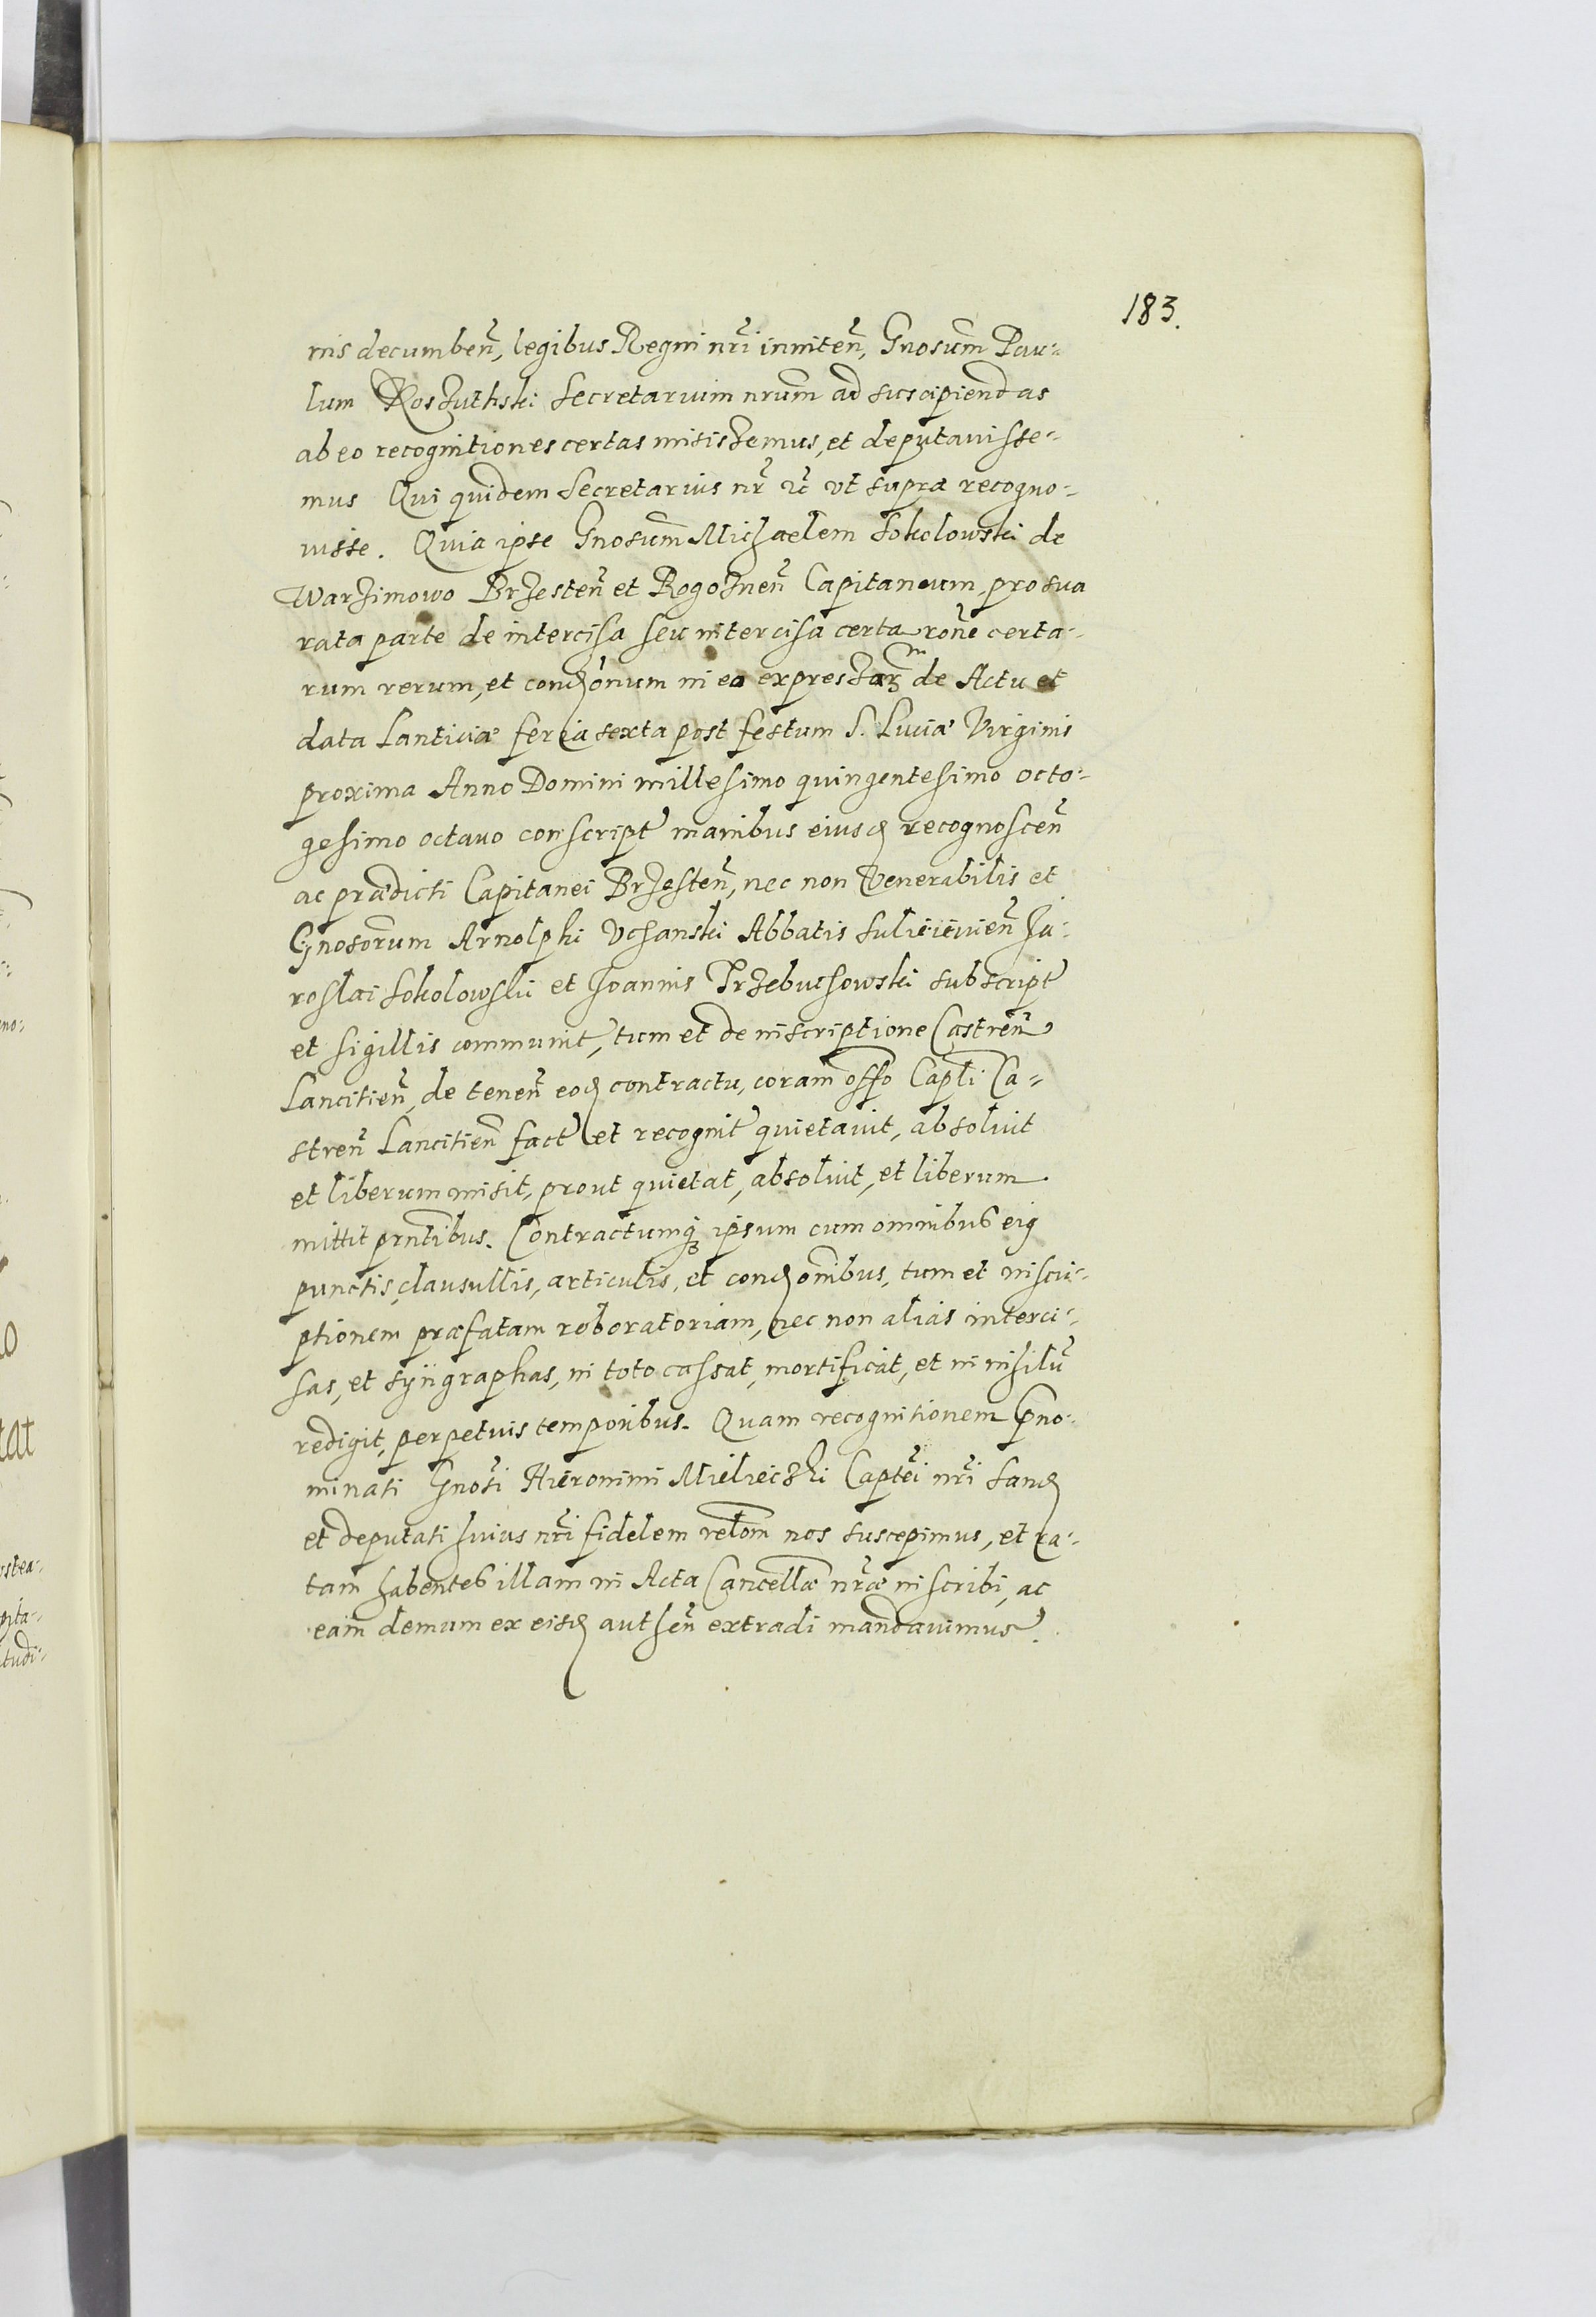 183.
mis decumbeñ, legibus Regni nr̃i inniteñ, Gnosum̃ Pau-
lum Koszuthski Secretarium nrum̃ ad suscipiendas
ab eo recognitiones certas misiszemus, et deputauisse-
mus Qui quidem Secretarius nr̃ ut supra recogno-
uisse. Quia ipse Gnosum̃ Michaelem Sokolowski de
Warzimowo Brzesteñ et Rogozneñ Capitaneum, pro sua
rata parte de intercisa seu intercisa certa rõne certa-
rum rerum, et cond̃onum in ea expressar̃ de Actu et
data Lanticiæ feria sexta post festum S. Luciæ Virginis
proxima Anno Domini millesimo quingentesimo octo-
gesimo octauo conscript̃ manibus eiusd̃ recognosceñ
ac prædicti Capitanei Brzesteñ, nec non Venerabilis et
Gnosorum̃ Arnolphi Uchanski Abbatis Suliēieuieñ Ja-
roslai Sokolowski et Joannis Trzebuchowski subscript̃
et sigillis communit̃, tum et de inscriptione Castreñ
Lancitieñ, de teneñ eod̃ contractu, coram offo Capli Ca-
streñ Lancitieñ fact̃ et recognit̃ quietauit, absoluit
et liberum misit, prout quietat, absoluit, et liberum
mittit prñtibus. Contractumq̃ ipsum cum omnibus eig
punctis, clausullis, articulis, et cond̃onibus, tum et inscri-
ptionem præfatam roboratoriam, nec non alias interci-
sas, et syngraphas, in toto cassat, mortificat, et in nihilũ
redigit, perpetuis temporibus. Quam recognitionem p̃no-
minati Gnosi Hieronimi Mieliecski Captei nr̃i Sand̃
et deputati huius nr̃i fidelem relom̃ nos suscepimus, et ra-
tam habentes illam in Acta Cancellæ nr̃æ inscribi, ac
eam̃ demum ex eisd̃ autheñ extradi mandauimus.